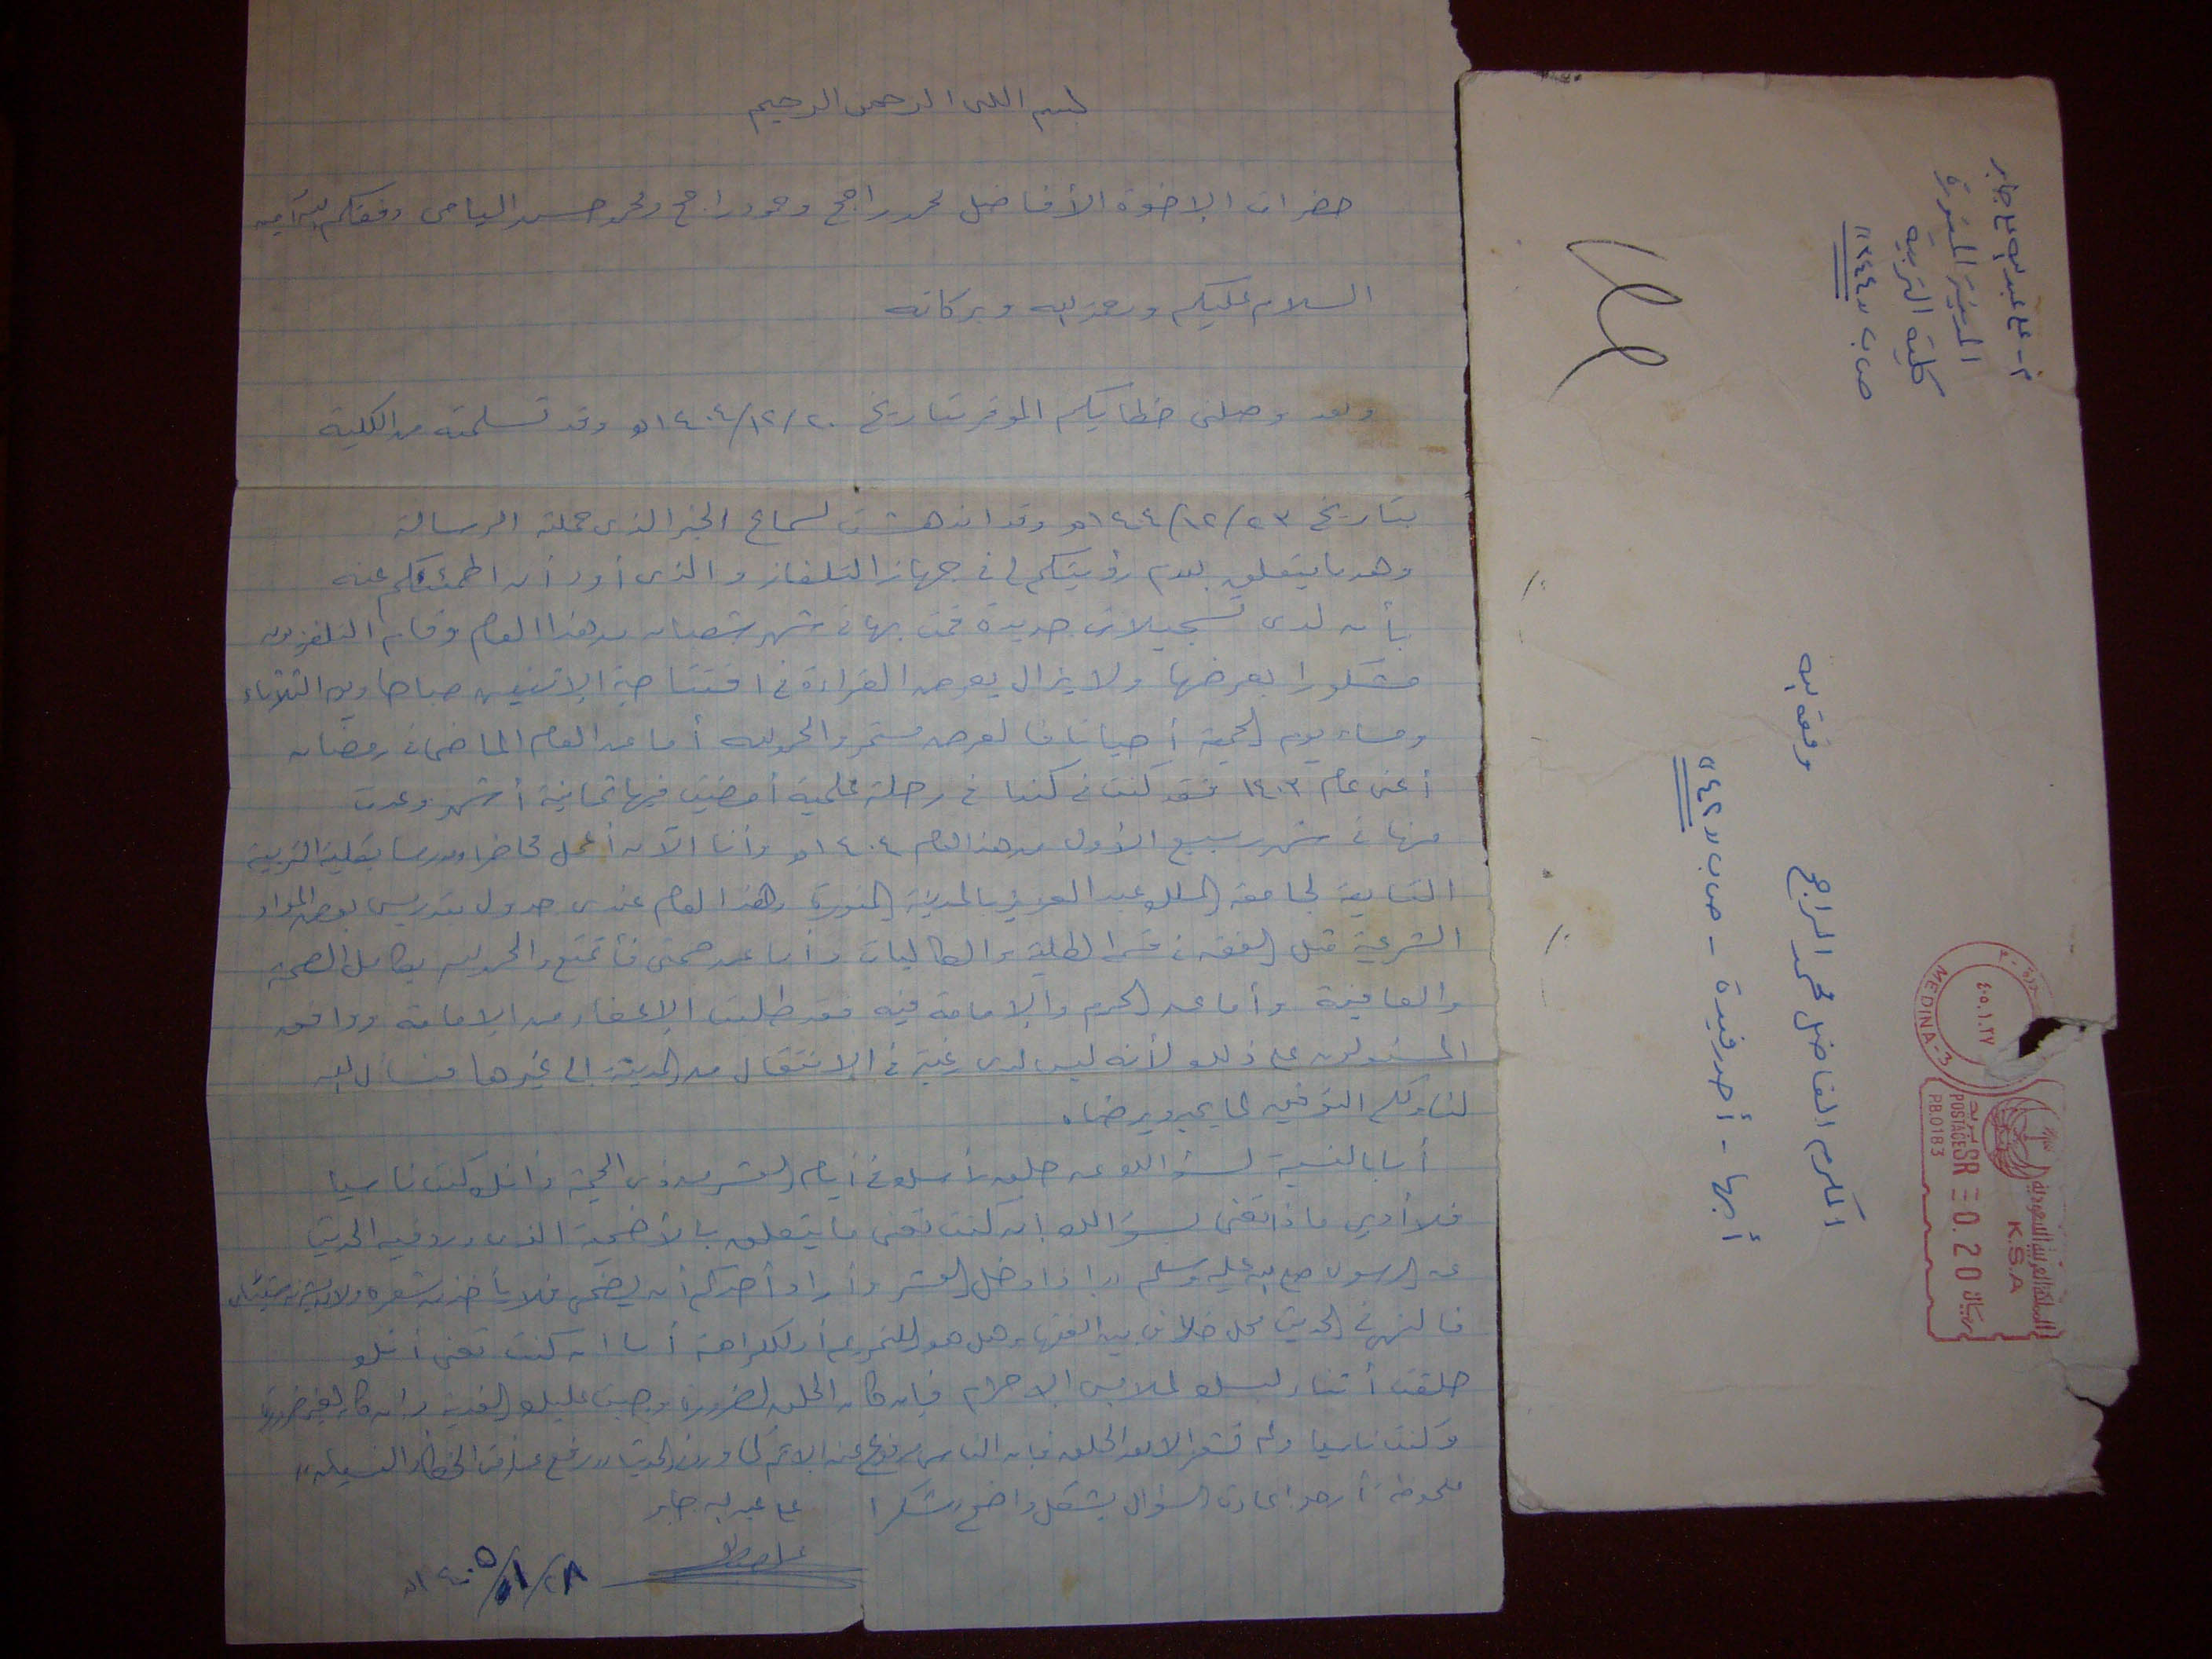 بسم الله الرحمن الرحيم
حضرات الإخوة الأفاضل محمد راجح وحمود راجح ومحمد حسين اليامي وفقكم الله آمين
السلام عليكم ورحمة الله وبركاته
وبعد وصلني خطابكم الموقر بتاريخ ٢٠/١٢/١٤٠٤هـ وقد تسلمته من الكلية
بتاريخ ٢٣/١٢/١٤٠٤هـ وقد اندهشت لسماع الخبر الذي حملته الرسالة
وهو ما يتعلق بعدم رؤيتكم لي في جهاز التلفاز والذي أود أن اطمئنكم عنه
بأن لدى تسجيلات جديدة قمت بها في شهر شعبان من هذا العام وقام التلفزيون
مشكورا بعرضها ولا يزال يعرض القراءة في افتتاحية الإثنين صباحا ويوم الثلاثاء
ومساء يوم الجمعة أحيانا فالعرض مستمر والحمد لله أما عن العام الماضي في رمضان
أعني عام ١٤٠٣ فقد كنت في كندا في رحلة علمية أمضيت فيها ثمانية أشهر وعدت
منها في شهر ربيع الأول من هذا العام ١٤٠٤هـ وأنا الآن أعمل محاضرا ومدرسا بكلية التربية
التابعة لجامعة الملك عبد العزيز بالمدينة المنورة وهذا العام عندي جدول بتدريس بعض المواد
الشرعية مثل الفقه في قسم الطلبة والطالبات وأما عن صحتي فأتمتع والحمد لله بكامل الصحة
والعافية وأما عن الحرم والإمامة فيه فقد طلبت الإعفاء من الإمامة ووافق
المسئولون على ذلك لأنه ليس لدى رغبة في الانتقال من المدينة إلى غيرها فنسأل الله
لنا ولكم التوفيق لما يحبه ويرضاه
أما بالنسبة لسؤالك عن حلق رأسك في أيام العشر من ذي الحجة وأنك كنت ناسيا
فلا أدري ماذا تعني بسؤالك إن كنت تعني ما يتعلق بالأضحية الذي ورد فيه الحديث
عن الرسول صلى الله عليه وسلم «إذا دخل العشر وأراد أحدكم أن يضحي فلا يأخذ من شعره ولا من بشرته شيئا»
فالنهي في الحديث محل خلاف بين الفقهاء هل هو للتحريم أو للكراهة أما إن كنت تعني أنك
حلقت أثناء لبسك لملابس الإحرام فإن كان الحلق لضرورة وجبت عليك الفدية وإن كان لغير ضرورة
وكنت ناسيا ولم تشعر إلا بعد الحلق فإن الناس مرفوع عنه الإثم كما ورد في الحديث «رفع عن أمتي الخطأ والنسيان»
ملحوظة: أرجو إعادة السؤال بشكل واضح وشكرا
علي عبد الله جابر
٢٨/١/١٤٠٥هـ
م - علي عبد الله علي جابر
المدينة المنورة
كلية التربية
ص ب
المكرم الفاضل محمد الراجح وفقه الله
أبها - أحد رفيدة - ص ب ٢٤٢
MEDINA-3
٤٠٥.١.٢٧
المملكة العربية السعودية
K.S.A
بريد
POSTAGE SR 0.20 ريال
PB.0183